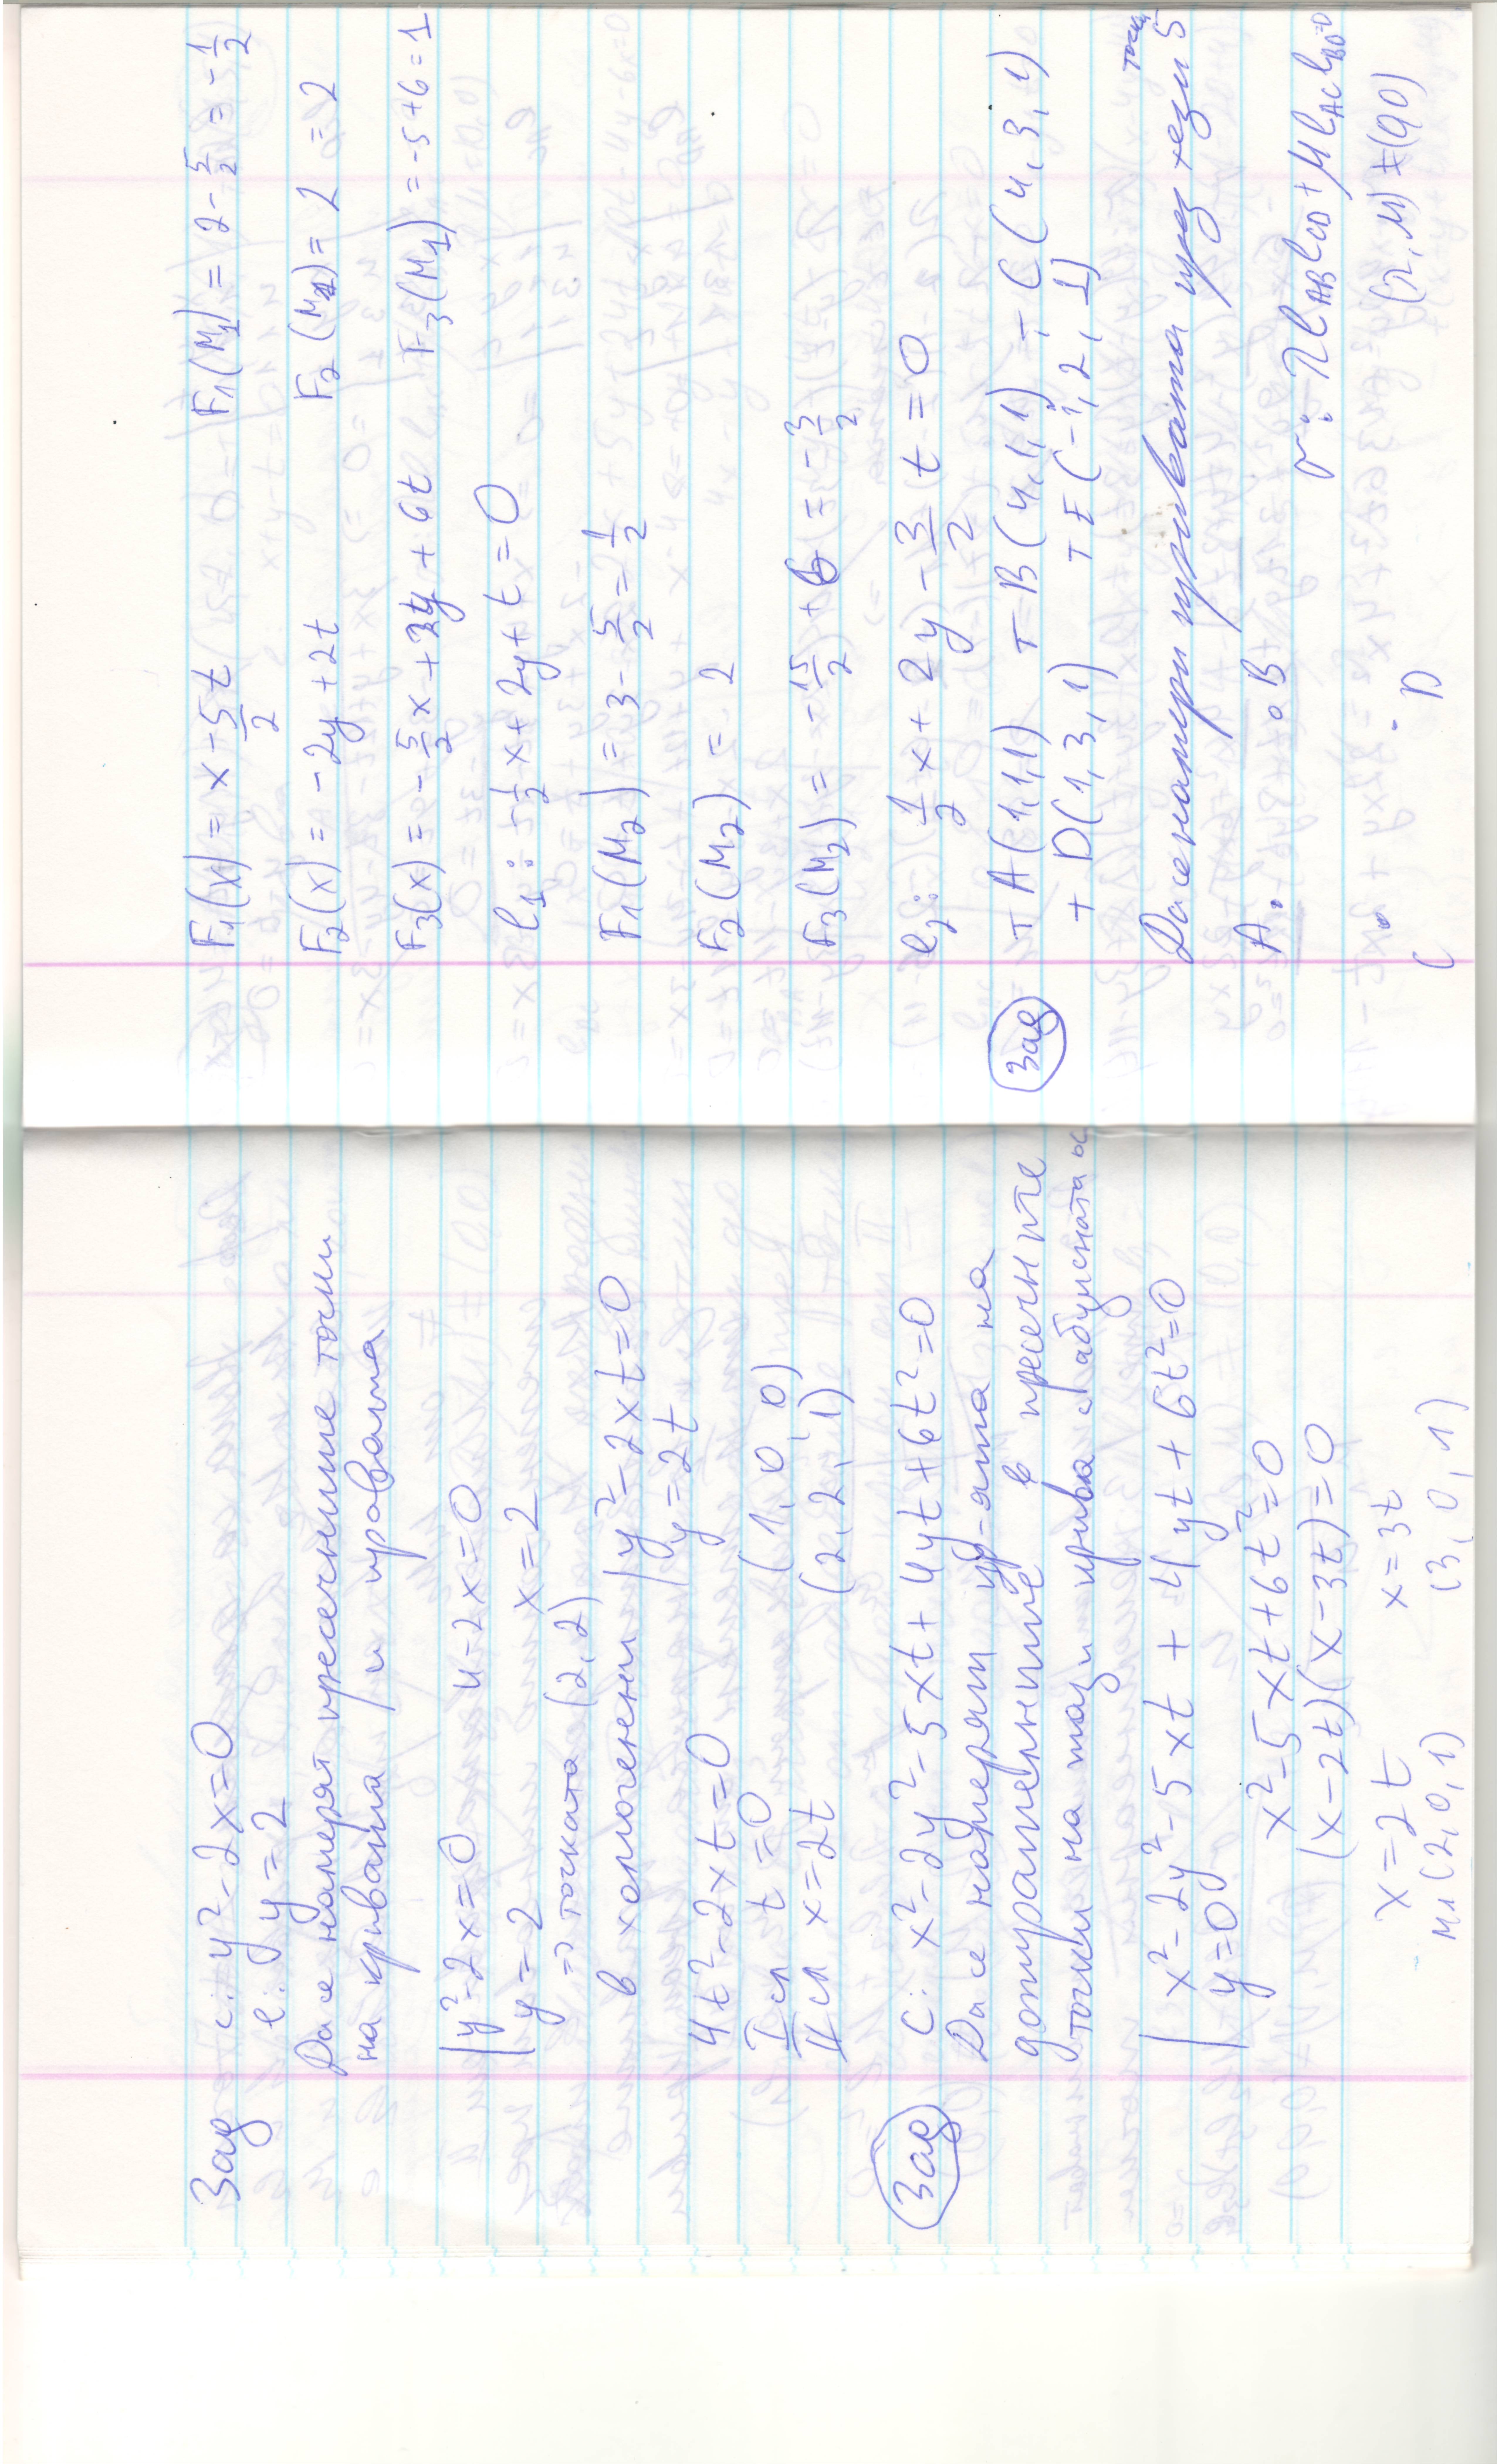 Зад c: y² - 2x = 0
l: y = 2
Да се намерят пресечните точки
на кривата и правата
| y² - 2x = 0 4 - 2x = 0
| y = 2 x = 2
=> точката (2, 2)
в хомогенни | y² - 2xt = 0
| y = 2t
4t² - 2xt = 0
I сл t = 0 (1, 0, 0)
II сл x = 2t (2, 2, 1)
Зад C: x² - 2y² - 5xt + 4yt + 6t² = 0
Да се намерят ур-ята на
допирателните в пресечните
точки на тази крива с абцисната ос
| x² - 2y² - 5xt + 4yt + 6t² = 0
| y = 0
x² - 5xt + 6t² = 0
(x - 2t)(x - 3t) = 0
x = 2t x = 3t
M₁(2, 0, 1) (3, 0, 1)
F₁(x) = x - 5/2 t F₁(M₁) = 2 - 5/2 = -1/2
F₂(x) = -2y + 2t F₂(M₁) = 2 = 2
F₃(x) = -5/2 x + 2y + 6t F₃(M₁) = -5 + 6 = 1
l₁: -1/2 x + 2y + t = 0
F₁(M₂) = 3 - 5/2 = 1/2
F₂(M₂) = 2
F₃(M₂) = -15/2 + 6 = -3/2
l₂: 1/2 x + 2y - 3/2 t = 0
Зад т A(1,1,1) т B(4,1,1) т C(4,3,1)
т D(1,3,1) т E(-1,2,1)
Да се намери кривата през тези 5 точки
A. .B
σ: λ l_AB l_CD + μ l_AC l_BD = 0
C . . D (λ, μ) ≠ (0,0)